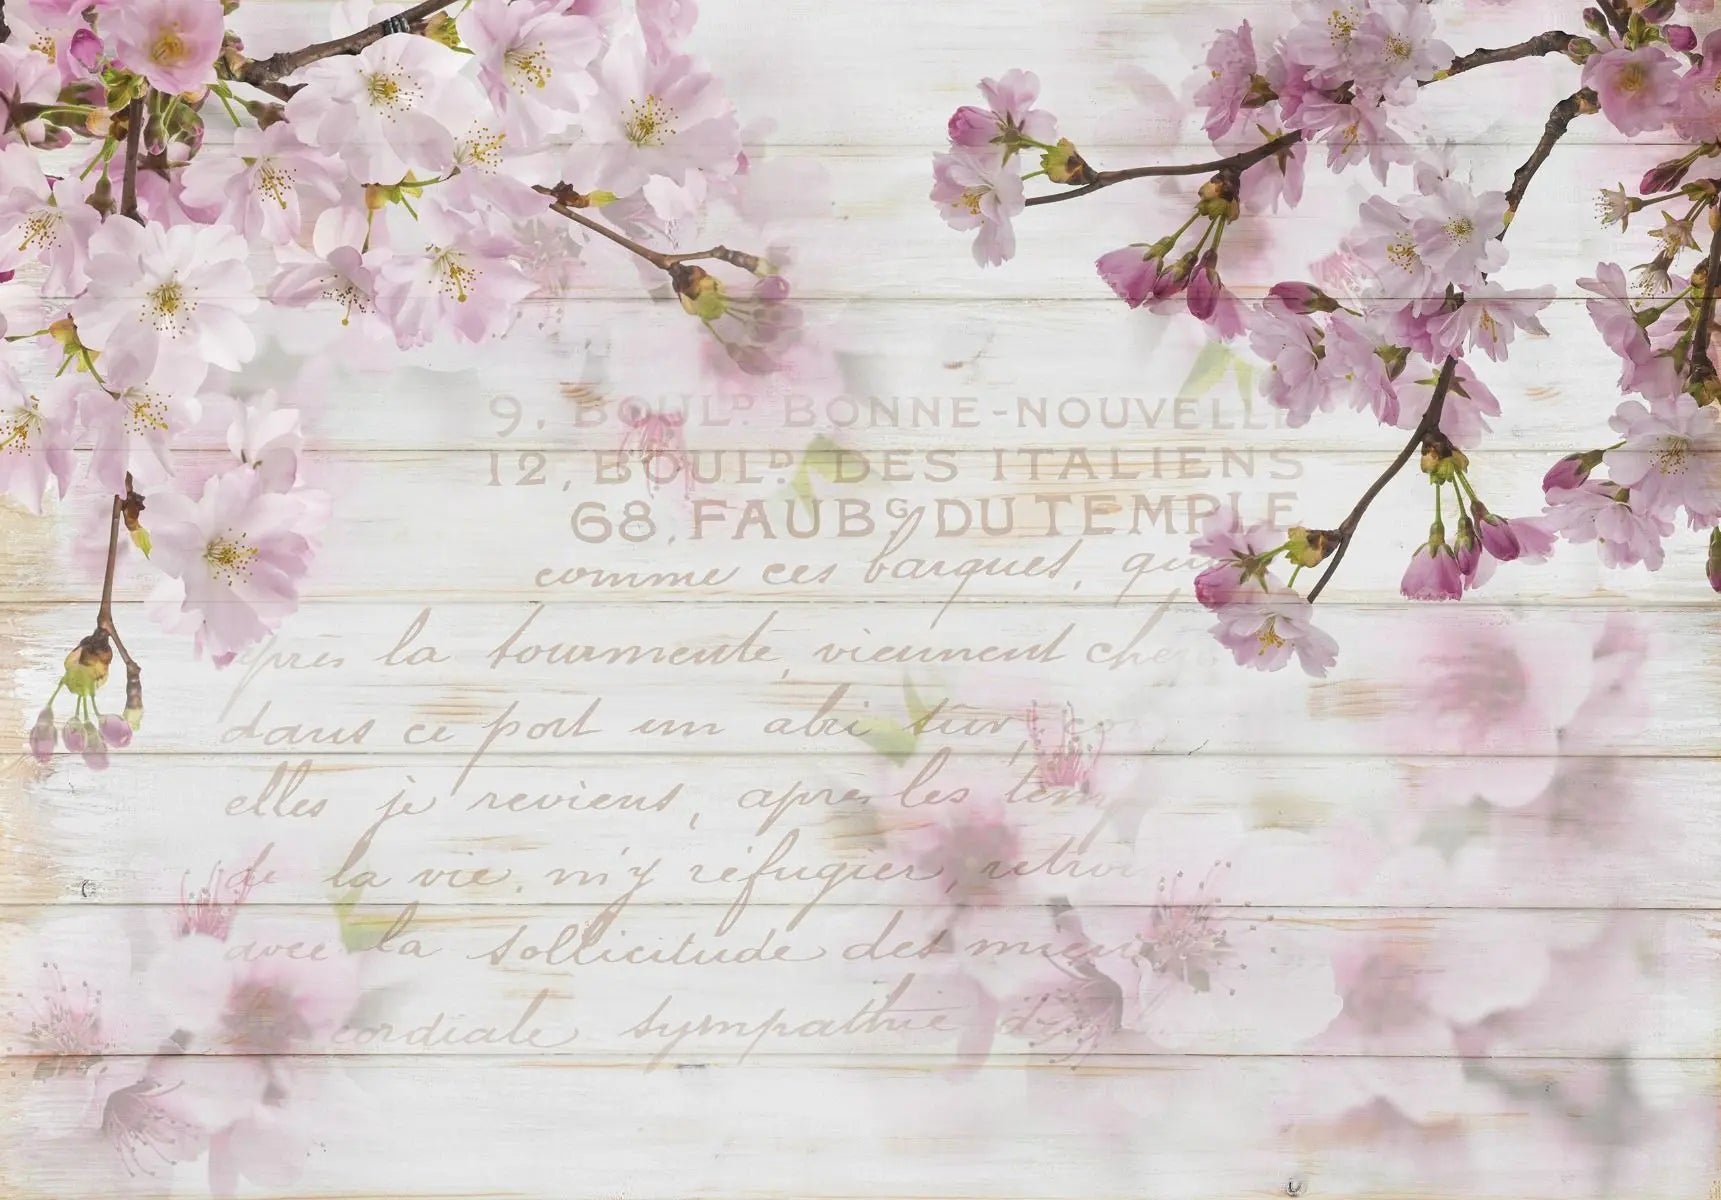 9, BOULD. BONNE-NOUVELLE
12, BOULD. DES ITALIENS
68, FAUBG. DU TEMPLE
comme ces barques, qui
après la tourmente, viennent
dans ce port un abri sûr,
elles je reviens, après les
de la vie, m'y réfugier,
avec la sollicitude des
cordiale sympathie